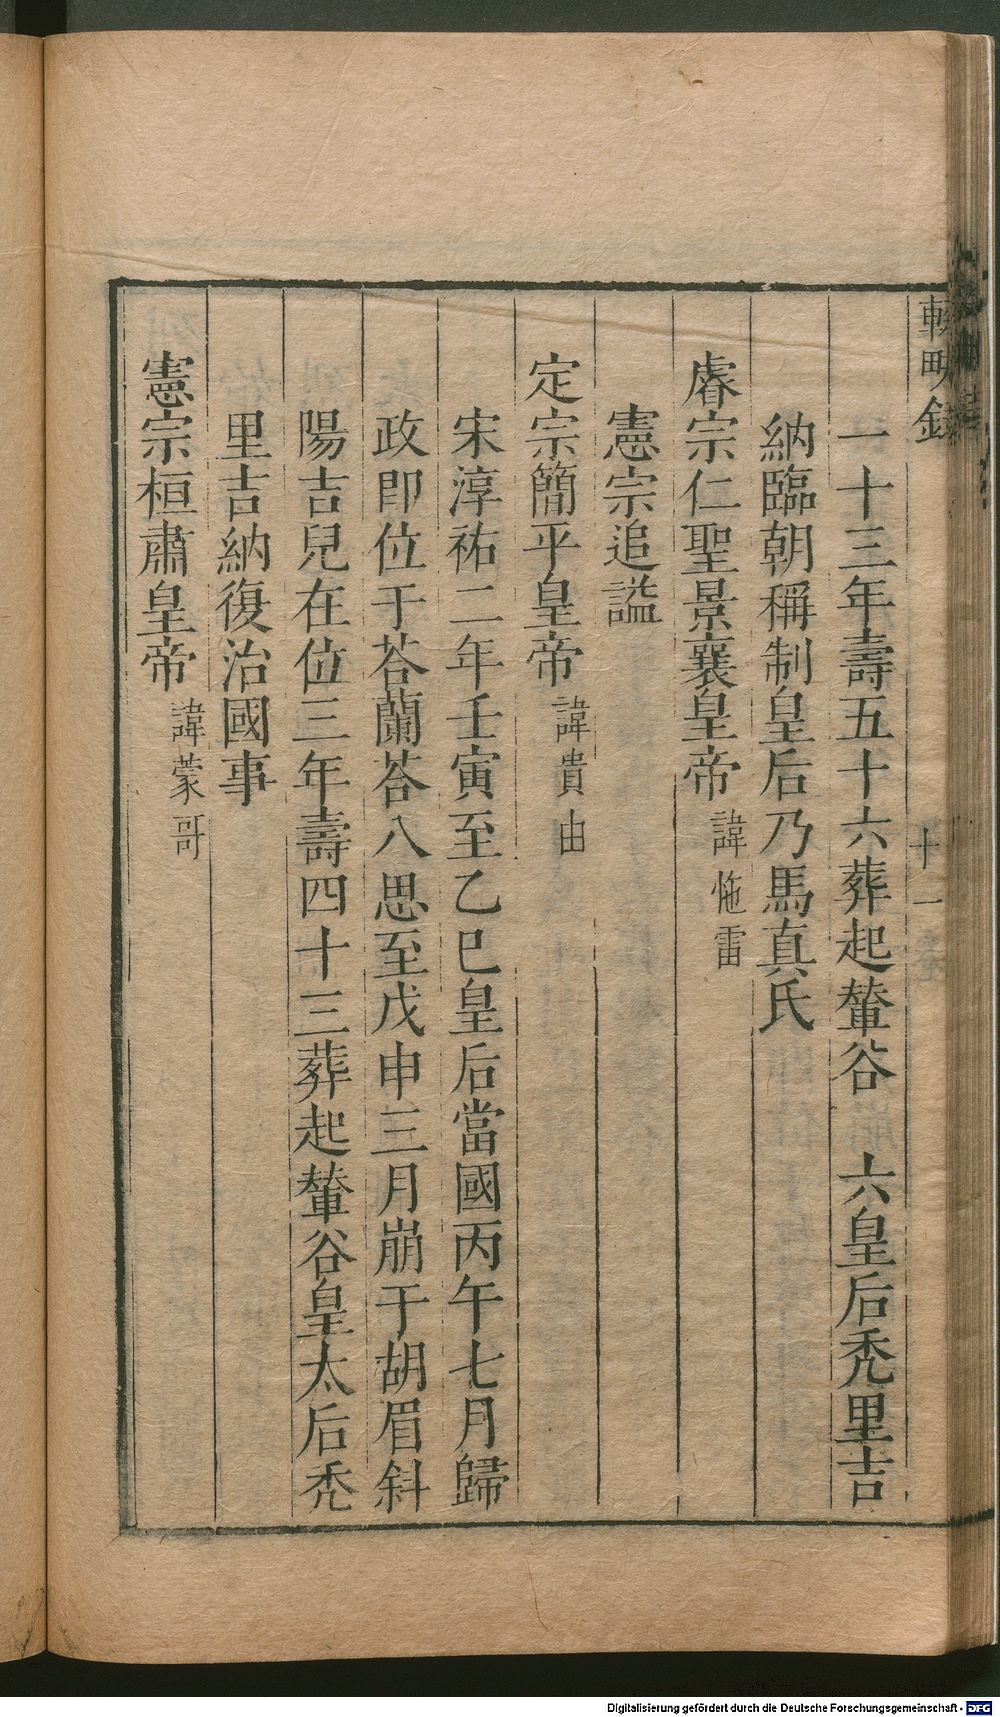 輟畊錄
十一
一十三年壽五十六葬起輦谷 六皇后禿里吉
納臨朝稱制皇后乃馬真氏
睿宗仁聖景襄皇帝 諱𢘿雷
憲宗追謚
定宗簡平皇帝 諱貴由
宋淳祐二年壬寅至乙巳皇后當國丙午七月歸
政即位于荅蘭荅八思至戊申三月崩于胡眉斜
陽吉兒在位三年壽四十三葬起輦谷皇太后禿
里吉納復治國事
憲宗桓肅皇帝 諱蒙哥
Digitalisierung gefördert durch die Deutsche Forschungsgemeinschaft - DFG